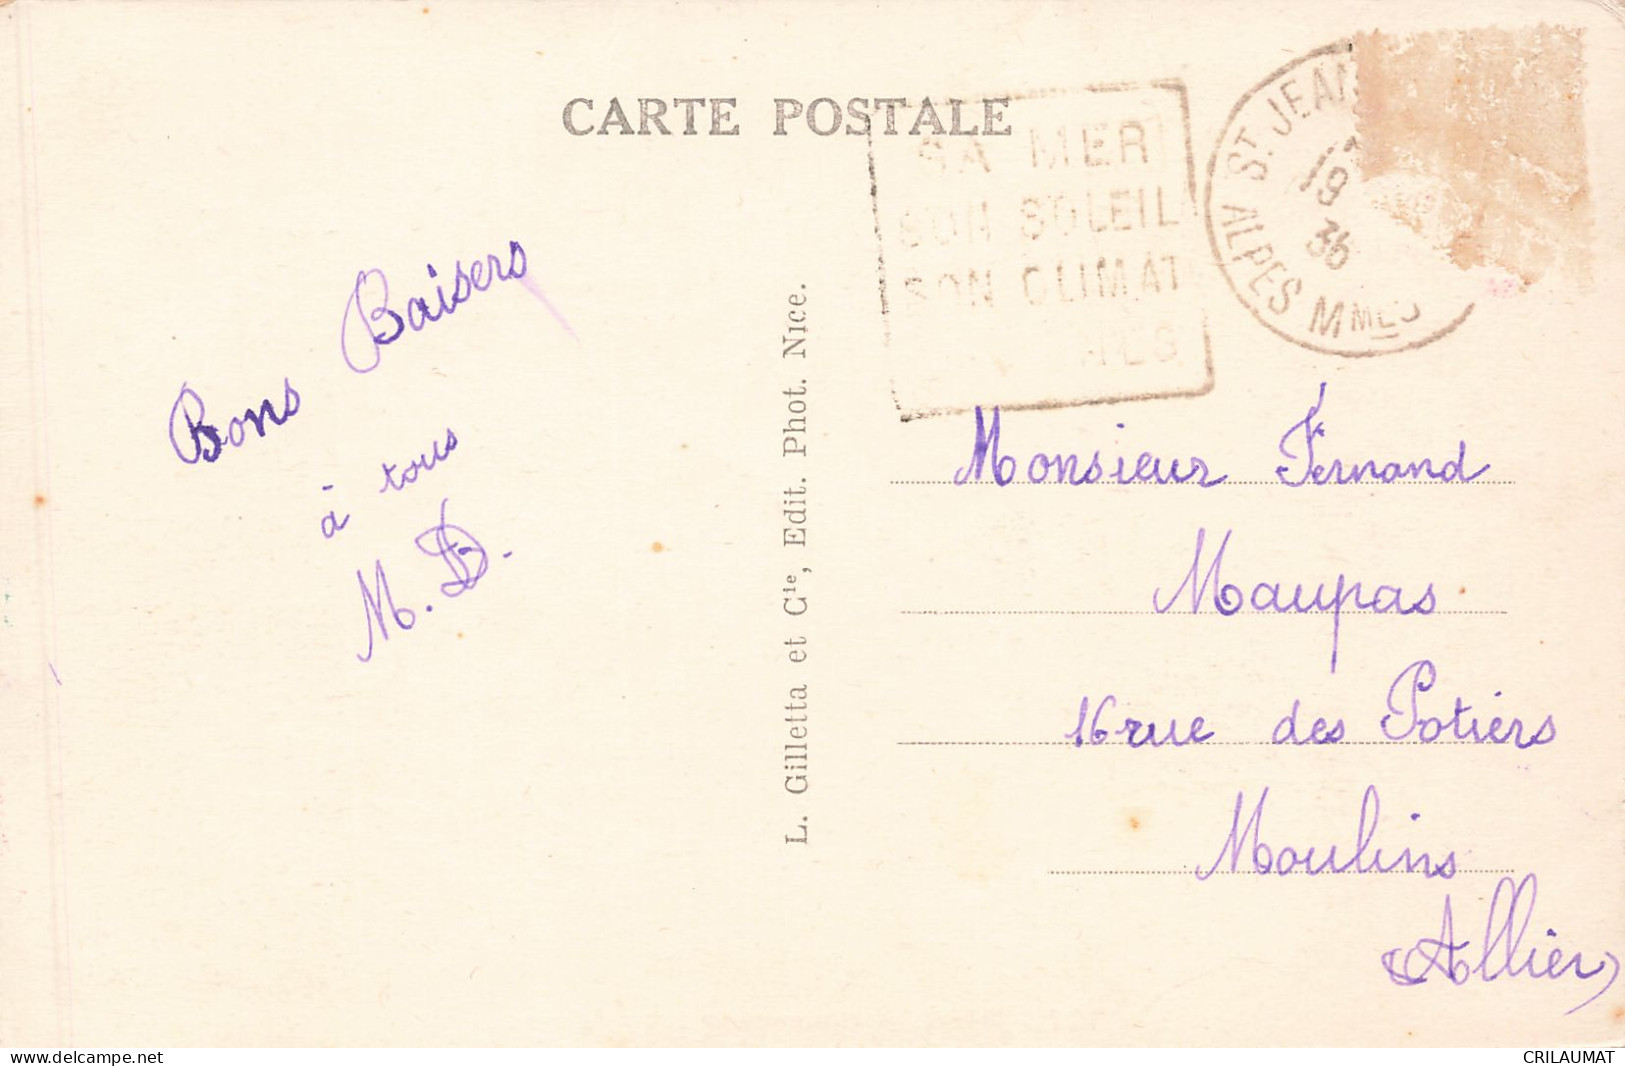 CARTE POSTALE
SA MER
SON SOLEIL
SON CLIMAT
ST. JEAN
19
36
ALPES MMES
Bons Baisers
à tous
M. D.
L. Gilletta et Cie, Edit. Phot. Nice.
Monsieur Fernand
Maupas
16 rue des Potiers
Moulins
(Allier)
www.delcampe.net
CRILAUMAT